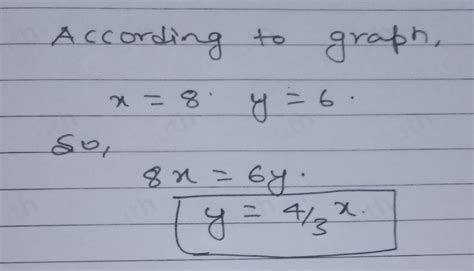 According to graph,
x = 8. y = 6.
So,
8x = 6y.
y = 4/3 x.